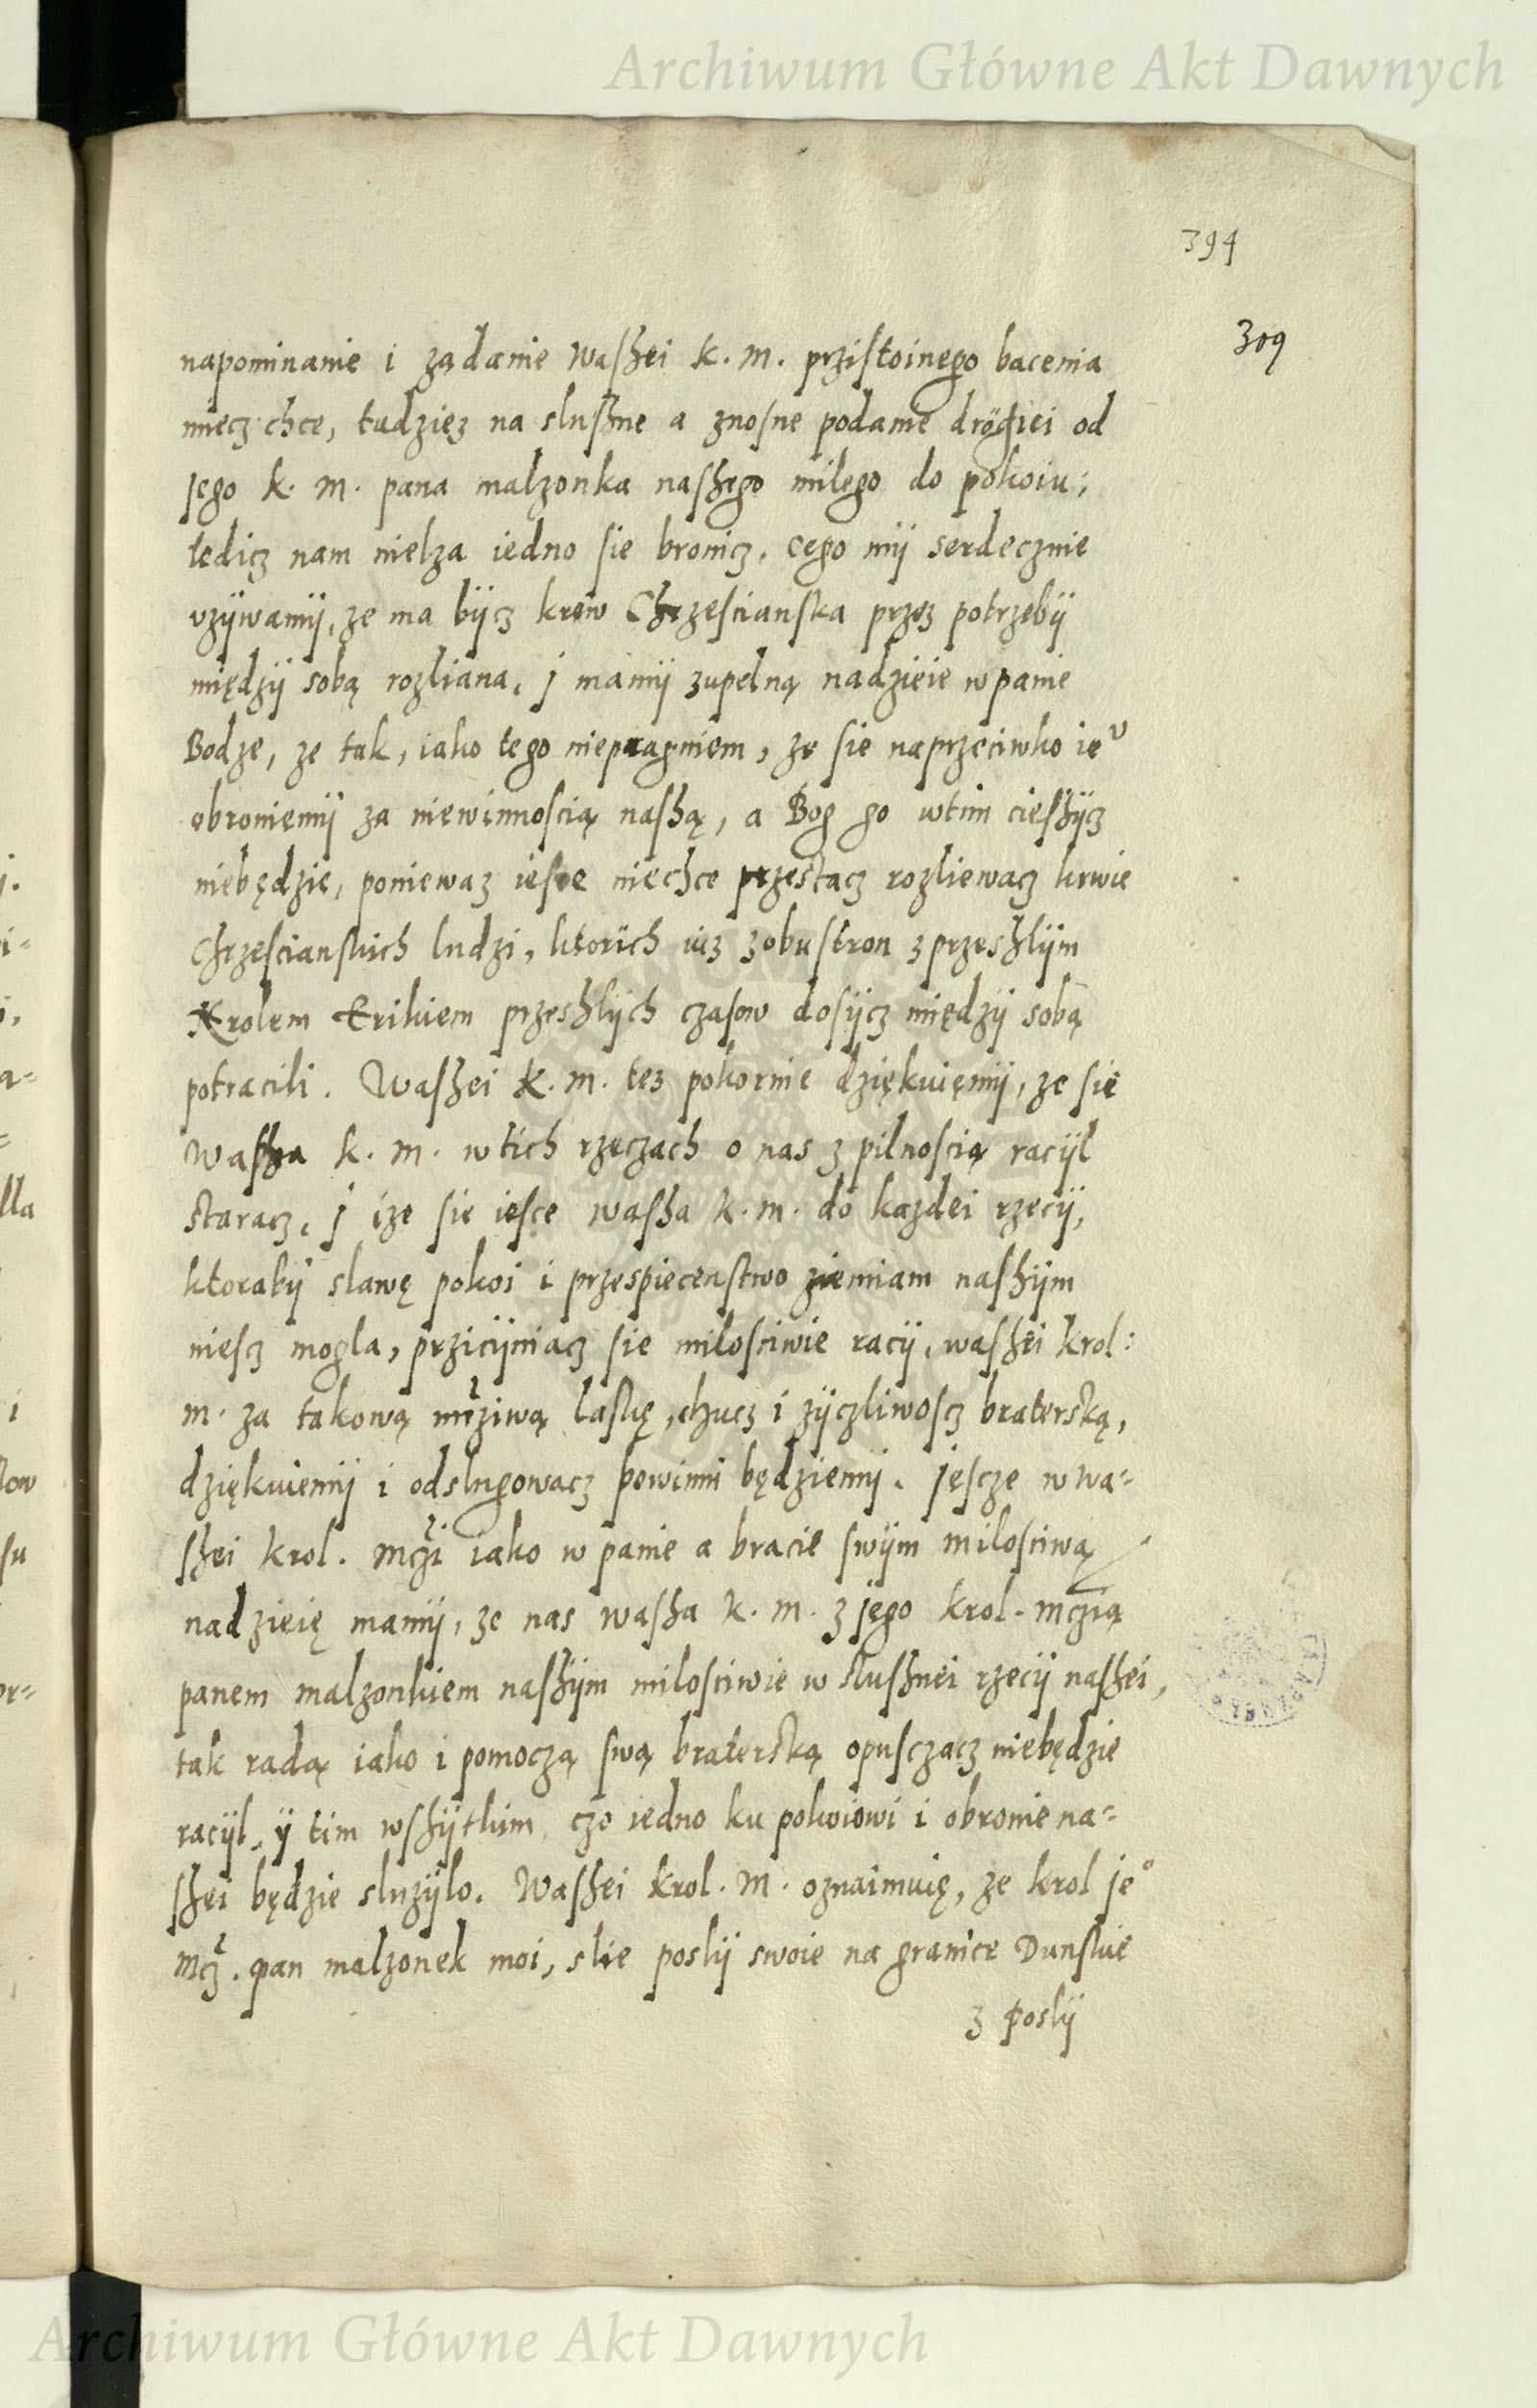 Archiwum Główne Akt Dawnych
394
309
napominanie i ządanie waszei k. m. przistoinego bacenia
miecz chce, tudziez na sluszne a znosne podanie drögiei od
jego k. m. pana malzonka naszego milego do pokoiu;
tedicz nam nielza iedno sie bronicz, cego mÿ serdecznie
vzÿwamÿ, ze ma bÿcz krew Chrzescianska przez potrzebÿ
międzÿ sobą rozliana, j mamÿ zupelną nadzieie w panie
Bodze, ze tak, iako tego niepragniem, ze sie naprzeciwko ieᵛ
obroniemÿ za niewinnoscią naszą, a Bog go wtim cieszÿcz
niebędzie, poniewaz iesce niechce przestacz rozliewacz krwie
Chrzescianskich ludzi, ktorich iuz zobustron z przeszlÿm
Krolem Erikiem przeszlÿch czasow dosÿcz międzÿ sobą
potracili. Waszei k. m. tez pokornie dziękuięmÿ, ze się
Wasza k. m. w tich rzeczach o nas z pilnoscią racÿl
staracz, j ize sie iesce wasza k. m. do kazdei rzecÿ,
ktorabÿ slawę pokoi i przespiecenstwo ziemiam naszÿm
niescz mogla, przicÿniacz sie milosciwie racÿ, waszei krol:
m. za takową mcziwą laskę, chucz i zÿczliwoscz braterską,
dziękuiemÿ i odslugowacz powinni będziemÿ. jescze w wa=
szei krol. mczi iako w panie a bracie swÿm milosciwą
nadzieię mamÿ, ze nas wasza k. m. z jego krol. mczią
panem malzonkiem naszÿm milosciwie w slusznei rzecÿ naszei,
tak radą iako i pomoczą swą braterską opusczacz niebędzie
racÿl, ÿ tim wszÿtkim czo iedno ku pokoiowi i obronie na=
szei będzie sluzÿlo. Waszei krol. m. oznaimuię, ze krol je°
mcz. pan malzonek moi, slie poslÿ swoie na granice Dunskie
z poslÿ
Archiwum Główne Akt Dawnych